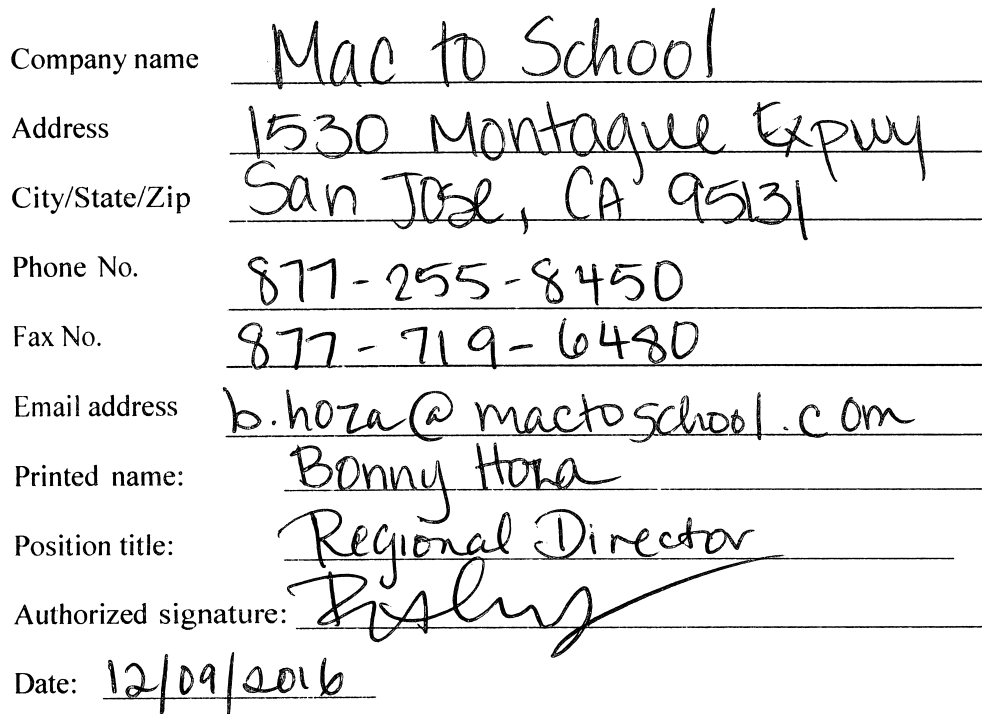 Company name Mac to School
Address 1530 Montague Expwy
City/State/Zip San Jose, CA 95131
Phone No. 877-255-8450
Fax No. 877-719-6480
Email address b.hoza@mactoschool.com
Printed name: Bonny Hoza
Position title: Regional Director
Authorized signature:
Date: 12/09/2016